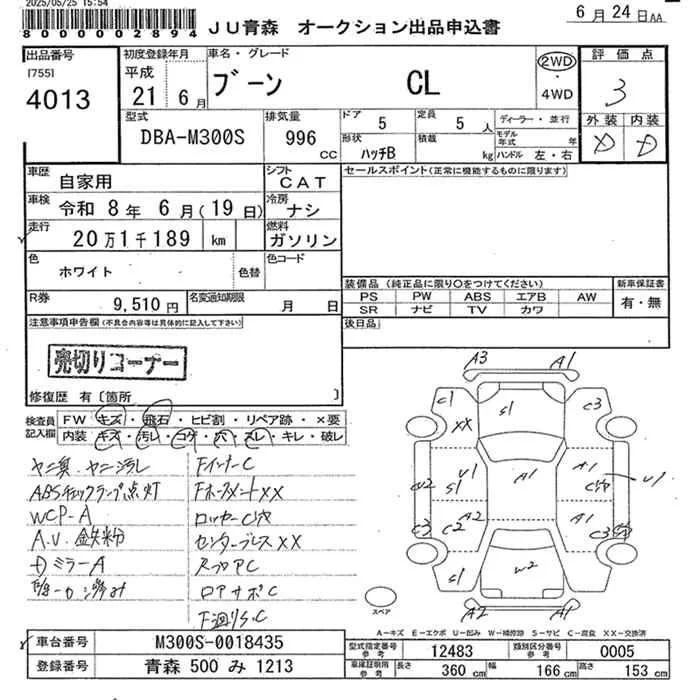 2025/05/25 15:54
8000002894
JU青森 オークション出品申込書
6月24日AA
出品番号
[755]
4013
初度登録年月
平成
21 6月
車名・グレード
ブーン CL
2WD
・
4WD
評価点
3
外装 内装
D D
型式
DBA-M300S
排気量
996 CC
ドア 5
定員 5 人
ディーラー・並行
形状 ハッチB
積載 kg
モデル年式 年
ハンドル 左・右
車歴
自家用
シフト
CAT
セールスポイント(正常に機能するものに限ります)
車検 令和 8年 6月(19日)
冷房
ナシ
走行
20万1千189 km
燃料
ガソリン
色
ホワイト
色替
色コード
装備品(純正品に限り○をつけてください)
新車保証書
PS PW ABS エアB AW
SR ナビ TV カワ
有・無
R券 9,510円
名変過知期限 月 日
後日品
注意事項申告欄(不具合内容等は具体的に記入して下さい)
売切りコーナー
修復歴 有〔箇所 〕
検査員
記入欄
FW キズ・飛石・ヒビ割・リペア跡・×要
内装 キズ・汚し・コゲ・穴・スレ・キレ・破レ
ヤニ臭・ヤニ汚し
ABSチェックランプ点灯
WCP-A
A.V.鉄粉
DミラーA
FインナーC
XX
ロッカーC穴
センターブレスXX
ロアサポC
A3 A1
C1 S1 C3
XX
U1 A1 A1
U2 S1 C穴 U1
A2 A1
C3 C2 C3
S1 W2
A2 A1
スペア
A-キズ E-エクボ U-凹み W-補修跡 S-サビ C-腐食 XX-交換済
車台番号 M300S-0018435
登録番号 青森 500 み 1213
型式指定番号 参考 12483
類別区分番号 参考 0005
車庫証明用 参考 長さ 360 cm 幅 166 cm 高さ 153 cm